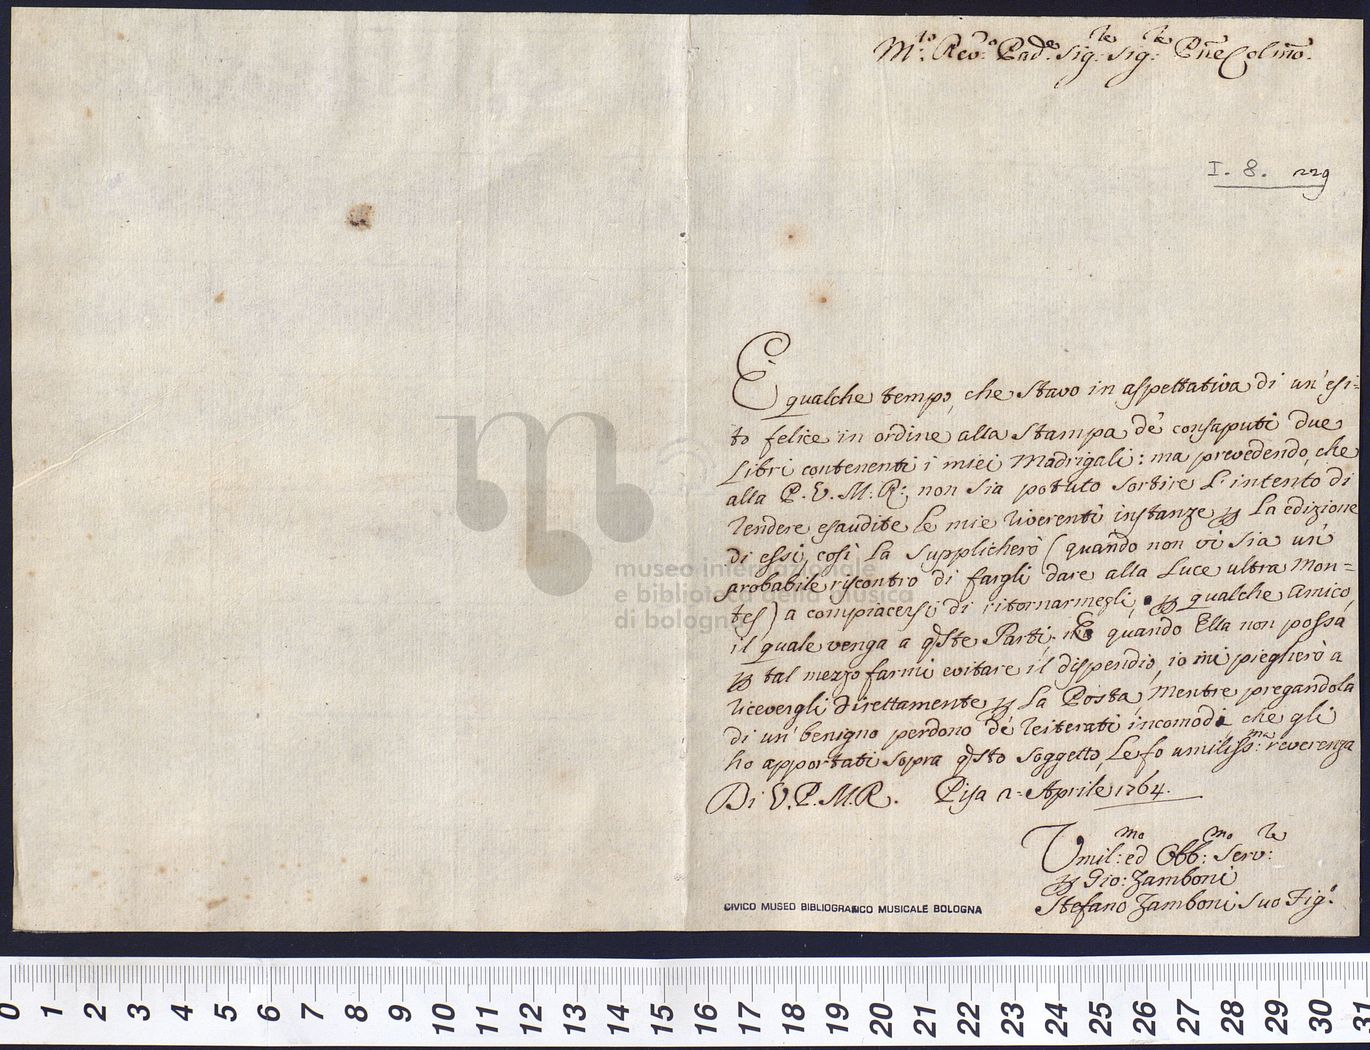 M.to Rev.do Pad.e Sig.re Sig.re Pne Colmo.
I. 8. 229
È qualche tempo, che stavo in aspettativa di un'esi-
to felice in ordine alla stampa de' consaputi due
Libri contenenti i miei Madrigali: ma prevedendo, che
alla P. V. M. R: non sia potuto sortire l'intento di
rendere esaudite le mie riverenti instanze p la edizione
di essi, così la supplicherò (quando non vi sia un
probabile riscontro di fargli dare alla luce ultra mon=
tes) a compiacersi di ritornarmegli p qualche amico,
il quale venga a qste Parti. E quando Ella non possa
p tal mezzo farmi evitare il dispendio, io mi piegherò a
ricevergli direttamente p la Posta, mentre pregandola
di un benigno perdono de' reiterati incomodi che gli
ho apportati sopra qsto soggetto, Le fo umiliss.ma reverenza
Di V. P. M. R. Pisa 2 Aprile 1764.
Umil.mo ed Obb.mo Serv.re
p Gio: Zamboni
Stefano Zamboni suo Fig.o
museo internazionale
e biblioteca della musica
di bologna
CIVICO MUSEO BIBLIOGRAFICO MUSICALE BOLOGNA
0 1 2 3 4 5 6 7 8 9 10 11 12 13 14 15 16 17 18 19 20 21 22 23 24 25 26 27 28 29 30 31